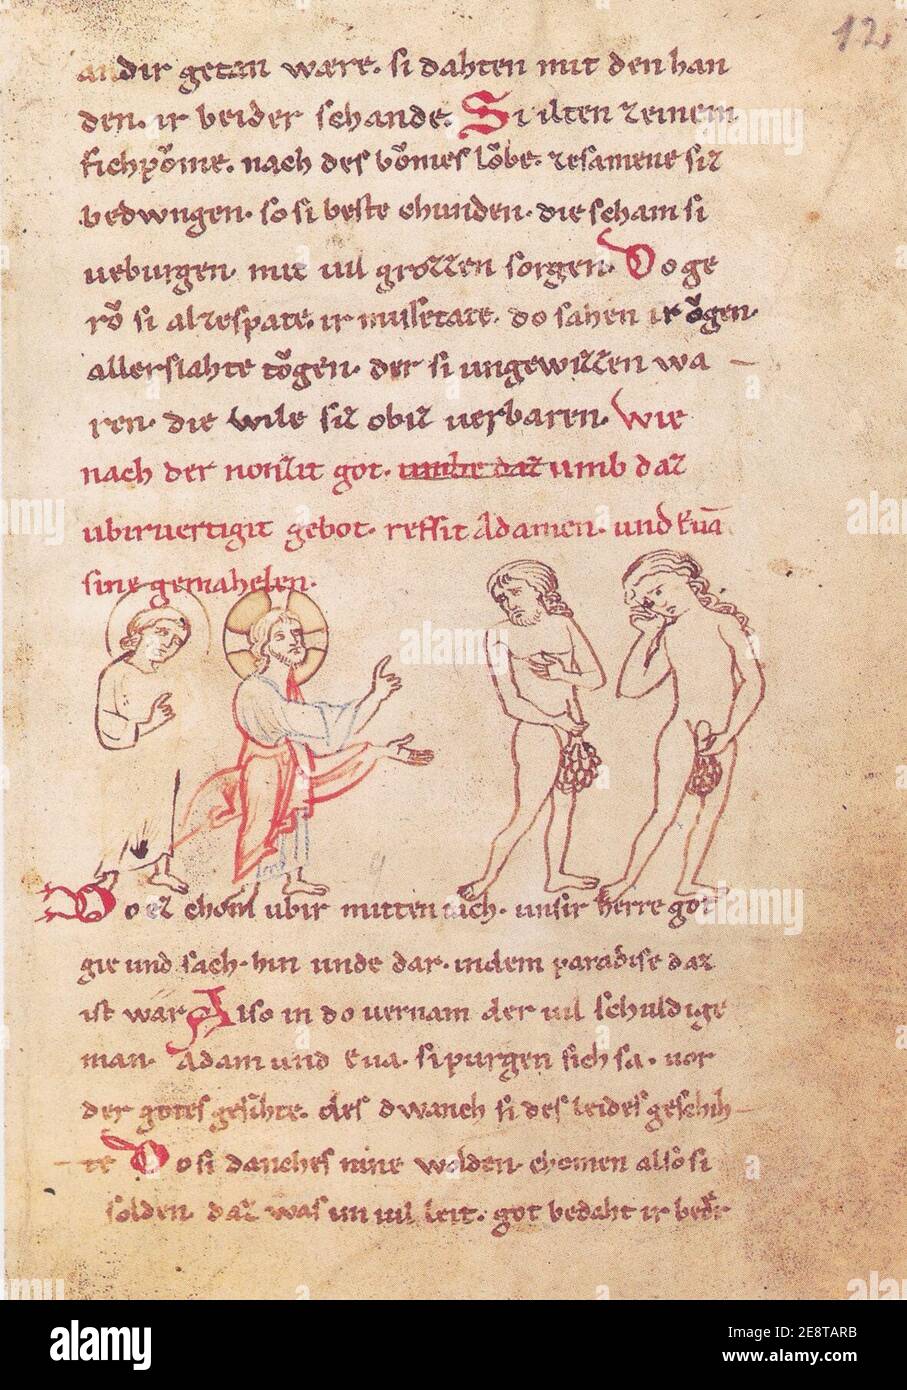 12
andir getan wære. si dahten mit den han
den. ir beider schande. Si ilten zeinem
fichpǒme. nach des bǒmes lǒbe. zesamene siz
bedwngen. so si beste chunden. die scham si
uerburgen. mit uil grozzen sorgen. Do ge
rǒ si alzespate. ir missetate. do sahen ir ǒgen.
allerslahte tǒgen. der si ungewizzen wa
ren. die wile siz obiz uerbaren. Wie
nach der got. umbe daz umb daz
ubirvertigit gebot. reffit Adamen. und Euā
sine gemahelen.
Do ez chom ubir mitten tach. unsir herre got
gie und sach. hin unde dar. in dem paradise daz
ist war Also in do uernam der uil schuldige
man. Adam und Eua. si purgen sich sa. vor
der gotes gesihte. des dwanch si des leides geschih
te Do si danches nine wolden. chomen also si
solden. daz was im uil leit. got bedaht ir
alamy
Image ID: 2E8TARB
www.alamy.com